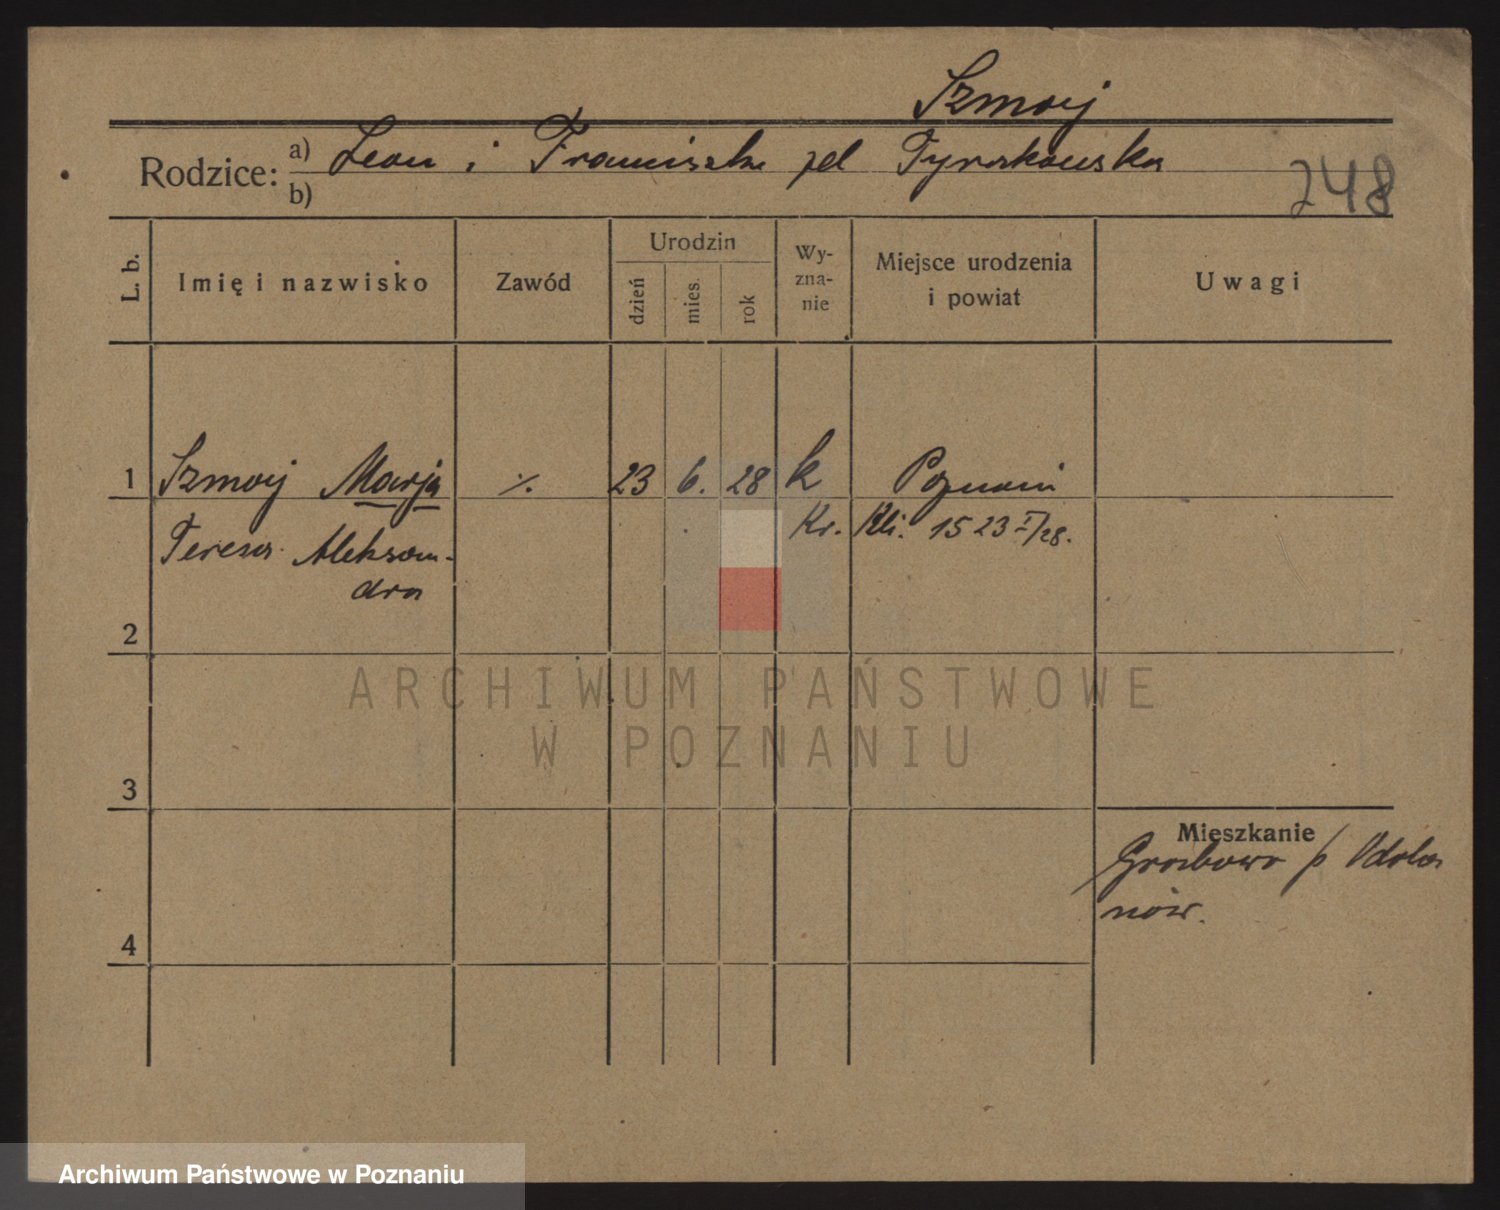 Szmaj
Rodzice: a) Leon i Franciszka zd Tyrakowska
b)
248
L. b.
Imię i nazwisko
Zawód
Urodzin
dzień
mies.
rok
Wy-
zna-
nie
Miejsce urodzenia
i powiat
Uwagi
1 Szmaj Marja ./. 23 6. 28 k Poznań
Teresa Aleksan-
dra
Kr. Kli. 1523 I/28.
2
3
4
Mieszkanie
p Odola
nów.
ARCHIWUM PAŃSTWOWE
W POZNANIU
Archiwum Państwowe w Poznaniu